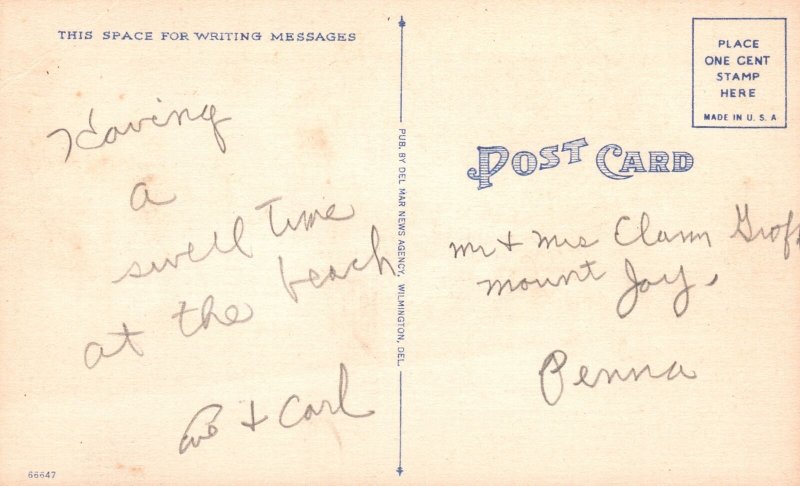 THIS SPACE FOR WRITING MESSAGES
Having
a
swell time
at the beach
& Carl
66647
PUB. BY DEL MAR NEWS AGENCY, WILMINGTON, DEL.
PLACE
ONE CENT
STAMP
HERE
MADE IN U. S. A
POST CARD
Mr + Mrs Groff
Mount Joy,
Penna